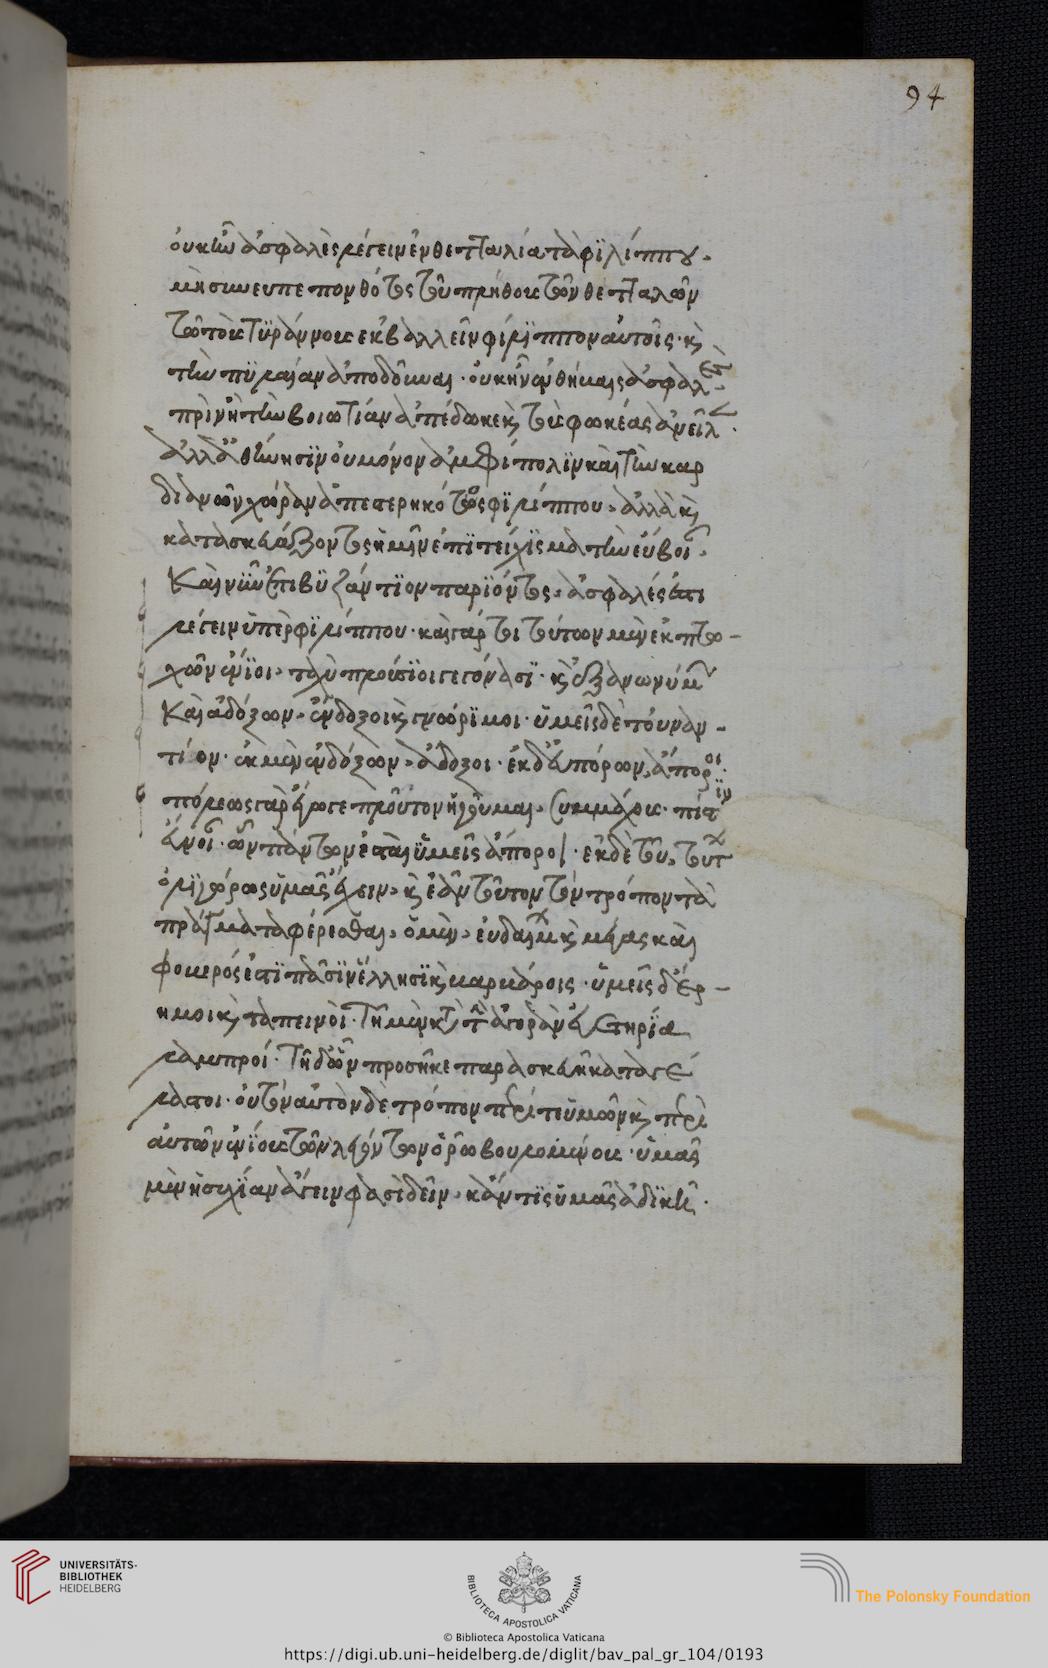 94
οὐκ ἦν ἀσφαλὲς λέγειν ἐν θετταλία τὰ φιλίππου.
μὴ συνευπεπονθότος τοῦ πλήθους τῶν θετταλῶν
τῶ τοὺς τυράννους ἐκβαλλεῖν φίλιππον αὐτοῖς· κ
τὴν πυλαίαν ἀποδοῦναι· οὐκ ἦν ἐν θήβαις ἀσφαλές
πρὶν ἢ τὴν βοιωτίαν ἀπέδωκε κ τοὺς φωκέας ἀνεῖλ.
ἀλλ' ἀθήνησιν οὐ μόνον ἀμφίπολιν καὶ τὴν καρ
διανῶν χώραν ἀπεστερηκότος φιλίππου. ἀλλὰ κ
κατασκευάζοντος ἡμῖν ἐπιτείχισμα τὴν εὔβοι.
Καὶ νῦν ἐπὶ βυζάντιον παριόντος. ἀσφαλές ἐστι
λέγειν ὑπὲρ φιλίππου· καὶ γάρ τοι τούτων μὲν ἐκ πτω-
χῶν ἔνιοι. ταχὺ πλούσιοι γεγόνασι· κ ἐξ ἀνωνύμ
Καὶ ἀδόξων. ἔνδοξοι κ γνώριμοι· ὑμεῖς δὲ τοὐναν-
τίον· ἐκ μὲν ἐνδόξων. ἄδοξοι· ἐκ δ' εὐπόρων. ἄποροι·
πόλεως γὰρ ἔγωγε πλοῦτον ἡγοῦμαι. συμμάχους· πίστιν
εὔνοι· ὧν πάντων ἐστὲ ὑμεῖς ἄποροι· ἐκ δὲ τοῦ. τούτ
ὀλιγώρως ὑμᾶς ἔχειν. κ ἐᾶν τοῦτον τὸν τρόπον τὰ
πράγματα φέρεσθαι. ὁ μὲν. εὐδαίμ κ μέγας καὶ
φοβερός ἐστι πᾶσιν ἕλλησι κ βαρβάροις· ὑμεῖς δ' ἔρ-
ημοι κ ταπεινοί· τῆ μὲν κτ τὴν ἀγορὰν εὐετηρία
λαμπροί· τῆ δ' ὧν προσῆκε παρασκευῆ καταγέ
λαστοι· οὐ τὸν αὐτὸν δὲ τρόπον περί τε ὑμῶν κ περὶ
αὐτῶν ἐνίους τῶν λεγόντων ὁρῶ βουλομένους· ὑμᾶς
μὲν ἡσυχίαν ἄγειν φασὶ δεῖν. κἄν τις ὑμᾶς ἀδικῆ·
UNIVERSITÄTS-
BIBLIOTHEK
HEIDELBERG
BIBLIOTECA APOSTOLICA VATICANA
The Polonsky Foundation
© Biblioteca Apostolica Vaticana
https://digi.ub.uni-heidelberg.de/diglit/bav_pal_gr_104/0193